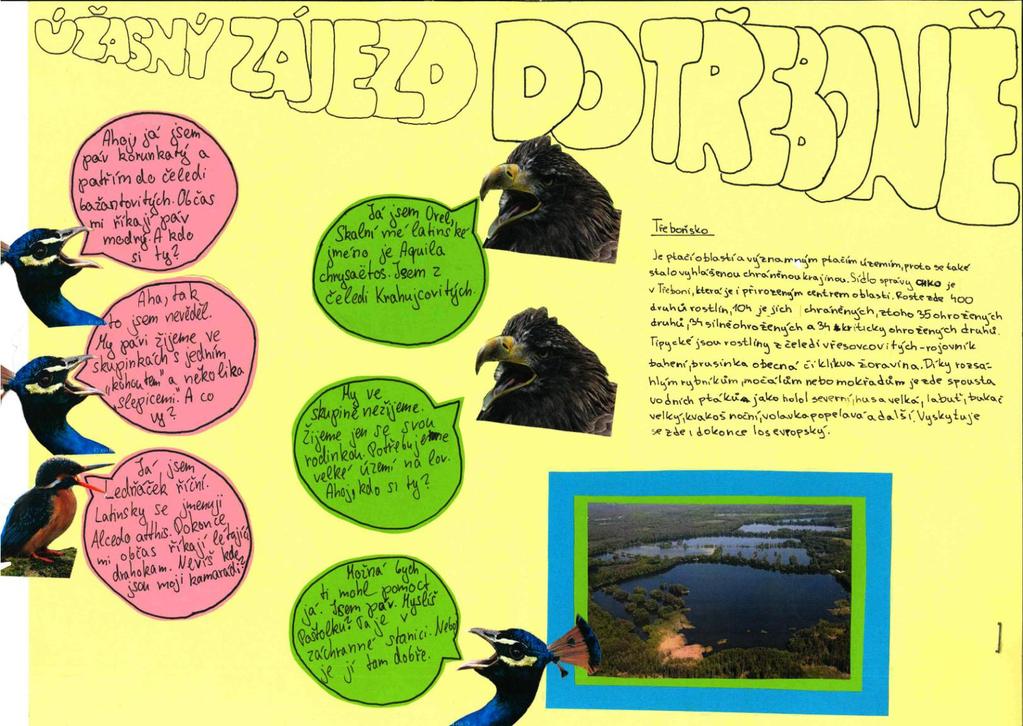 ÚŽASNÝ ZÁJEZD DO TŘEBONĚ
Ahoj já jsem
páv korunkatý a
patřím do čeledi
bažantovitých. Občas
mi říkají páv
modrý. A kdo
si ty?
Já jsem Orel
Skalní mé latinské
jméno je Aquila
chrysaëtos. Jsem z
čeledi Krahujcovitých.
Aha, tak
to jsem nevěděl.
My pávi žijeme ve
skupinkách s jedním
„kohoutem" a několika
„slepicemi". A co
vy?
My ve
skupině nežijeme.
Žijeme jen se svou
rodinkou. Potřebujeme
velké území na lov.
Ahoj, kdo si ty?
Já jsem
Ledňáček říční.
Latinsky se jmenuji
Alcedo atthis. Dokonce
mi občas říkají létající
drahokam. Nevíš kde
jsou moji kamarádi?
Možná bych
ti mohl pomoct
já. Jsem páv. Myslíš
Poštolku? Ta je v
záchranné stanici. Nebo
je jí tam dobře.
Třeboňsko
Je ptačí oblastí a významným ptačím územím, proto se také
stalo vyhlášenou chráněnou krajinou. Sídlo správy CHKO je
v Třeboni, která je i přirozeným centrem oblasti. Roste zde 400
druhů rostlin, 104 je jich chráněných, z toho 35 ohrožených
druhů, 34 silně ohrožených a 34 kriticky ohrožených druhů.
Tipycké jsou rostliny z čeledí vřesovcovitých - rojovník
bahení, brusinka obecná či klikva žoravina. Díky rozsa-
hlým rybníkům, močálům nebo mokřadům je zde spousta
vodních ptáků jako holol severní, husa velká, labuť, bukač
velký, kvakoš noční, volavka popelavá a další. Vyskytuje
se zde i dokonce los evropský.